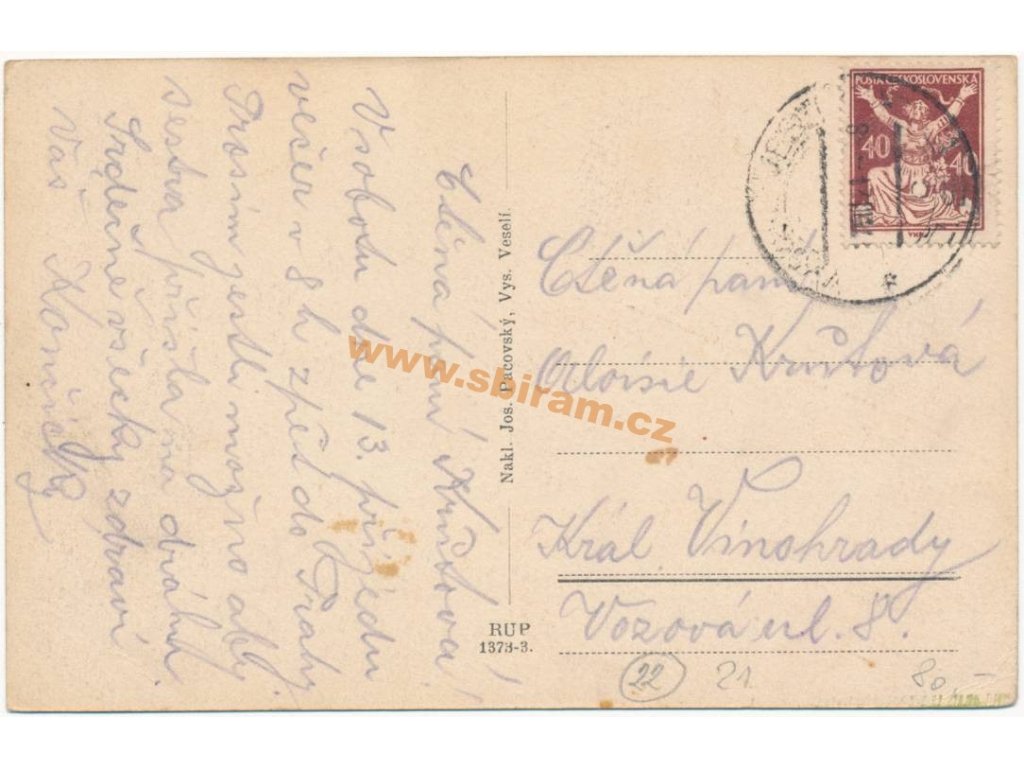 Ctěná paní Krušová!
V sobotu dne 13. přijedu
večer v 8 h zpět do Prahy
Prosím jestli možno aby
sestra přišla na dráhu.
Srdečně všecky zdraví
Váš
Nakl. Jos. Pacovský, Vys. Veselí.
RUP
1373-3.
POŠTA ČESKOSLOVENSKÁ
40 40
Ctěná paní
Aloisie
Král. Vinohrady
Vozová ul. 8.
22 21 80,—
www.sbiram.cz